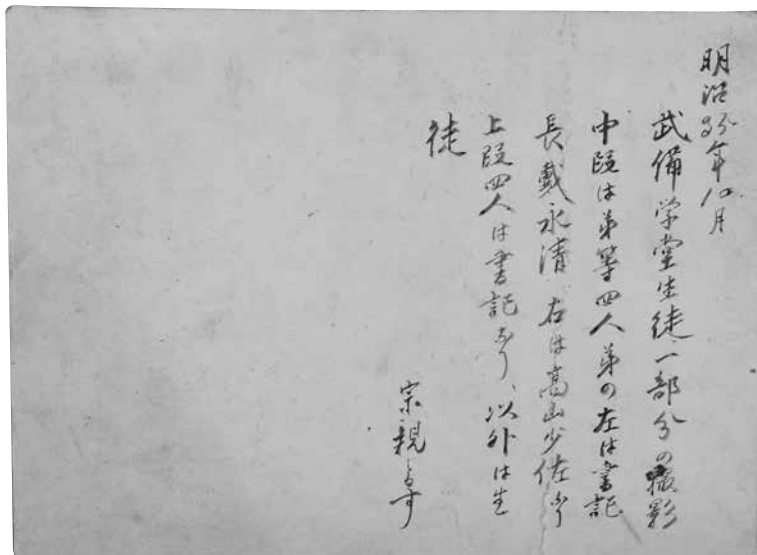 明治35年10月
武備学堂生徒一部分の撮影
中段は弟等四人弟の左は書記
長戴永清 右は高山少佐なり
上段四人は書記なり、以外は生
徒
宗親